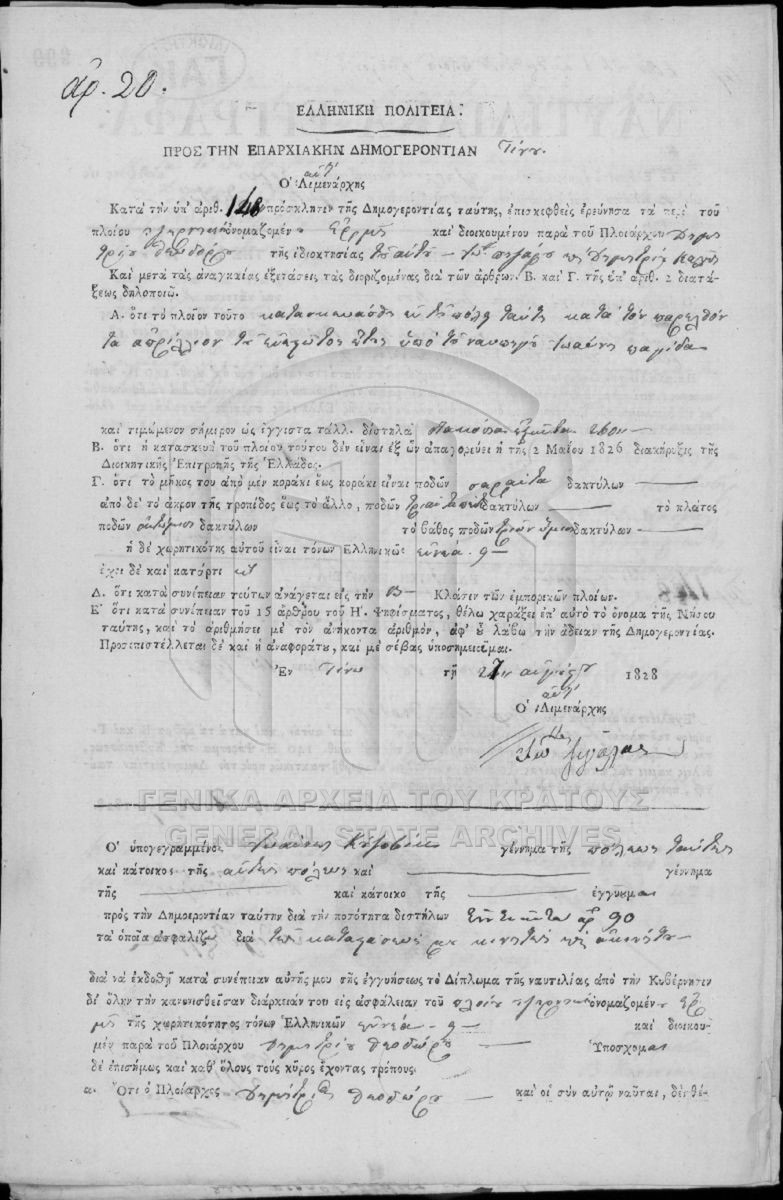 ἀρ. 20.
ΓΑΚ
ΕΛΛΗΝΙΚΗ ΠΟΛΙΤΕΙΑ.
ΠΡΟΣ ΤΗΝ ΕΠΑΡΧΙΑΚΗΝ ΔΗΜΟΓΕΡΟΝΤΙΑΝ Τήνου.
Ὁ Λιμενάρχης
Κατὰ τὴν ὑπ' ἀριθ. 148 πρόσκλησιν τῆς Δημογεροντίας ταύτης, ἐπισκεφθεὶς ἐρεύνησα τὰ περὶ τοῦ
πλοίου ὀνομαζομέν Ἑρμῆς καὶ διοικουμένου παρὰ τοῦ Πλοιάρχου Δημη
τρίου Θεοδώρου τῆς ἰδιοκτησίας τοῦ αὐτοῦ Δημητρίου
Καὶ μετὰ τὰς ἀναγκαίας ἐξετάσεις τὰς διοριζομένας διὰ τῶν ἄρθρων. Β. καὶ Γ. τῆς ὑπ' ἀριθ. 2 διατά-
ξεως δηλοποιῶ.
Α. ὅτι τὸ πλοῖον τοῦτο κατασκευάσθη ἐν τῇ πόλει ταύτῃ κατὰ τὸν παρελθόν
τα ἀπρίλλιον τοῦ ἐνεστῶτος ἔτους ὑπὸ τοῦ ναυπηγοῦ Ἰωάννου
καὶ τιμώμενον σήμερον ὡς ἔγγιστα τάλλ. δίστηλα διακόσια ἑξῆντα 260
Β. ὅτι ἡ κατασκευὴ τοῦ πλοίου τούτου δὲν εἶναι ἐξ ὧν ἀπαγορεύει ἡ τῆς 2 Μαΐου 1826 διακήρυξις τῆς
Διοικητικῆς Ἐπιτροπῆς τῆς Ἑλλάδος.
Γ. ὅτι τὸ μῆκος του ἀπὸ μὲν κοράκι ἕως κοράκι εἶναι ποδῶν σαράντα δακτύλων
ἀπὸ δὲ τὸ ἄκρον τῆς τροπίδος ἕως τὸ ἄλλο, ποδῶν τριάντα πέντε δακτύλων τὸ πλάτος
ποδῶν δακτύλων τὸ βάθος ποδῶν τριῶν ἥμισυ δακτύλων
ἡ δὲ χωρητικότης αὐτοῦ εἶναι τόνων Ἑλληνικῶν ἐννέα. 9
ἔχει δὲ καὶ κατάρτι
Δ. ὅτι κατὰ συνέπειαν τούτων ἀνάγεται εἰς τὴν Β Κλάσιν τῶν ἐμπορικῶν πλοίων.
Ε. ὅτι κατὰ συνέπειαν τοῦ 15 ἄρθρου τοῦ Η'. Ψηφίσματος, θέλω χαράξει ἐπ' αὐτὸ τὸ ὄνομα τῆς Νήσου
ταύτης, καὶ τὸ ἀριθμήσει μὲ τὸν ἀνήκοντα ἀριθμόν, ἀφ' οὗ λάβω τὴν ἄδειαν τῆς Δημογεροντίας.
Προσεπιστέλλεται δὲ καὶ ἡ ἀναφορά του, καὶ μὲ σέβας ὑποσημειοῦμαι.
Ἐν Τήνῳ τῇ 27 αὐγούστου 1828
Ὁ Λιμενάρχης
ΓΕΝΙΚΑ ΑΡΧΕΙΑ ΤΟΥ ΚΡΑΤΟΥΣ
GENERAL STATE ARCHIVES
Ὁ ὑπογεγραμμένος Ἰωάννης γέννημα τῆς πόλεως ταύτης
καὶ κάτοικος τῆς αὐτῆς πόλεως καὶ γέννημα
τῆς καὶ κάτοικο τῆς ἐγγυῶμαι
πρὸς τὴν Δημογεροντίαν ταύτην διὰ τὴν ποσότητα διστήλων ἐννενῆντα ἀρ 90
τὰ ὁποῖα ἀσφαλίζω διὰ τῆς καταστάσεώς μου κινητῆς καὶ ἀκινήτου
διὰ νὰ ἐκδοθῇ κατὰ συνέπειαν αὐτῆς μου τῆς ἐγγυήσεως τὸ Δίπλωμα τῆς ναυτιλίας ἀπὸ τὴν Κυβέρνησιν
δι' ὅλην τὴν κανονισθεῖσαν διάρκειάν του εἰς ἀσφάλειαν τοῦ πλοίου ὀνομαζομένου Ἑρ
μῆς τῆς χωρητικότητος τόνων Ἑλληνικῶν ἐννέα 9 καὶ διοικου
μέν παρὰ τοῦ Πλοιάρχου Δημητρίου Θεοδώρου Ὑπόσχομαι
δὲ ἐπισήμως καὶ καθ' ὅλους τοὺς κῦρος ἔχοντας τρόπους.
α. Ὅτι ὁ Πλοίαρχος Δημήτριος Θεοδώρου καὶ οἱ σὺν αὐτῷ ναῦται, δὲν θέ-